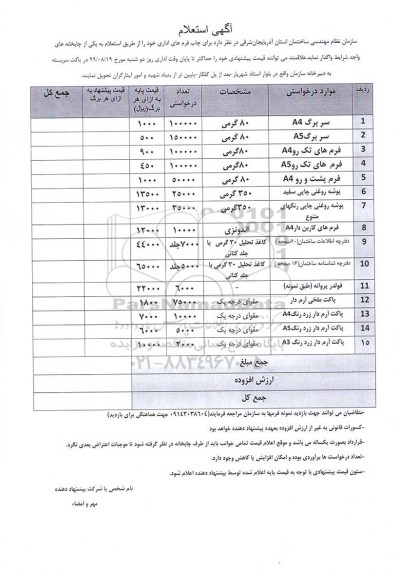 آگهی استعلام
سازمان نظام مهندسی ساختمان استان آذربایجان‌شرقی در نظر دارد برای چاپ فرم های اداری خود را از طریق استعلام به یکی از چاپخانه های
واجد شرایط واگذار نماید.علاقمند می توانند قیمت پیشنهادی خود را حداکثر تا پایان وقت اداری روز دو شنبه مورخ ۹۹/۰۸/۱۹ در پاکت سربسته
به دبیرخانه سازمان واقع در بلوار استاد شهریار-بعد از پل گلکار-پایین تر از بنیاد شهید و امور ایثارگران تحویل نمایند.
ردیف موارد درخواستی مشخصات تعداد درخواستی قیمت پایه به ازای هر برگ(ریال) قیمت پیشنهاد به ازای هر برگ جمع کل
1 سر برگ A4 ۸۰ گرمی ۱۰۰۰۰۰ ۱۰۰۰
2 سر برگ A5 ۸۰ گرمی ۱۵۰۰۰۰ ۵۰۰
3 فرم های تک رو A4 ۸۰گرمی ۱۰۰۰۰۰ ۹۰۰
4 فرم های تک رو A5 ۸۰گرمی ۱۰۰۰۰۰ ۴۵۰
5 فرم پشت و رو A4 ۸۰ گرمی ۵۰۰۰۰ ۱۰۰۰
6 پوشه روغنی چاپی سفید ۳۵۰ گرمی ۲۵۰۰۰ ۱۳۵۰۰
7 پوشه روغنی چاپی رنگهای متنوع ۳۵۰گرمی ۳۵۰۰۰ ۱۳۰۰۰
8 فرم های کاربن دار A4 اندونزی ۱۰۰۰۰ ۱۲۰۰۰
9 دفترچه اطلاعات ساختمان(۲۰صفحه) کاغذ تحلیل ۳۰ گرمی با جلد کتانی ۷۰۰۰جلد ۴۴۰۰۰
10 دفترچه شناسنامه ساختمان(۱۶صفحه) کاغذ تحلیل ۳۰ گرمی با جلد کتانی ۵۰۰۰جلد ۶۵۰۰۰
11 فولدر پروانه (طبق نمونه) - ۶۰۰۰ ۲۲۰۰۰
12 پاکت ملخی آرم دار مقوای درجه یک ۷۵۰۰۰ ۱۸۰۰
13 پاکت آرم دار زرد رنگA4 مقوای درجه یک ۱۰۰۰۰ ۷۰۰۰
14 پاکت آرم دار زرد رنگA5 مقوای درجه یک ۵۰۰۰ ۶۰۰۰
۱۵ پاکت آرم دار زرد رنگ A3 مقوای درجه یک ۲۰۰۰ ۱۰۰۰۰
جمع مبلغ
ارزش افزوده
جمع کل
ParsNamadData
۰۲۱-۸۸۳۴۹۶۷۰
-متقاضیان می توانند جهت بازدید نمونه فرمها به سازمان مراجعه فرمایند(۰۹۱۴۳۰۳۸۶۰۴ جهت هماهنگی برای بازدید)
-کسورات قانونی به غیر از ارزش افزوده بعهده پیشنهاد دهنده خواهد بود
-قرارداد بصورت یکساله می باشد و موقع اعلام قیمت تمامی جوانب باید از طرف چاپخانه در نظر گرفته شود تا موجبات اعتراض بعدی نگردد.
-تعداد درخواست ها برآوردی بوده و امکان افزایش یا کاهش وجود دارد.
-ستون قیمت پیشنهادی با توجه به قیمت پایه اعلام شده توسط پیشنهاد دهنده اعلام شود.
نام شخص یا شرکت پیشنهاد دهنده
مهر و امضاء